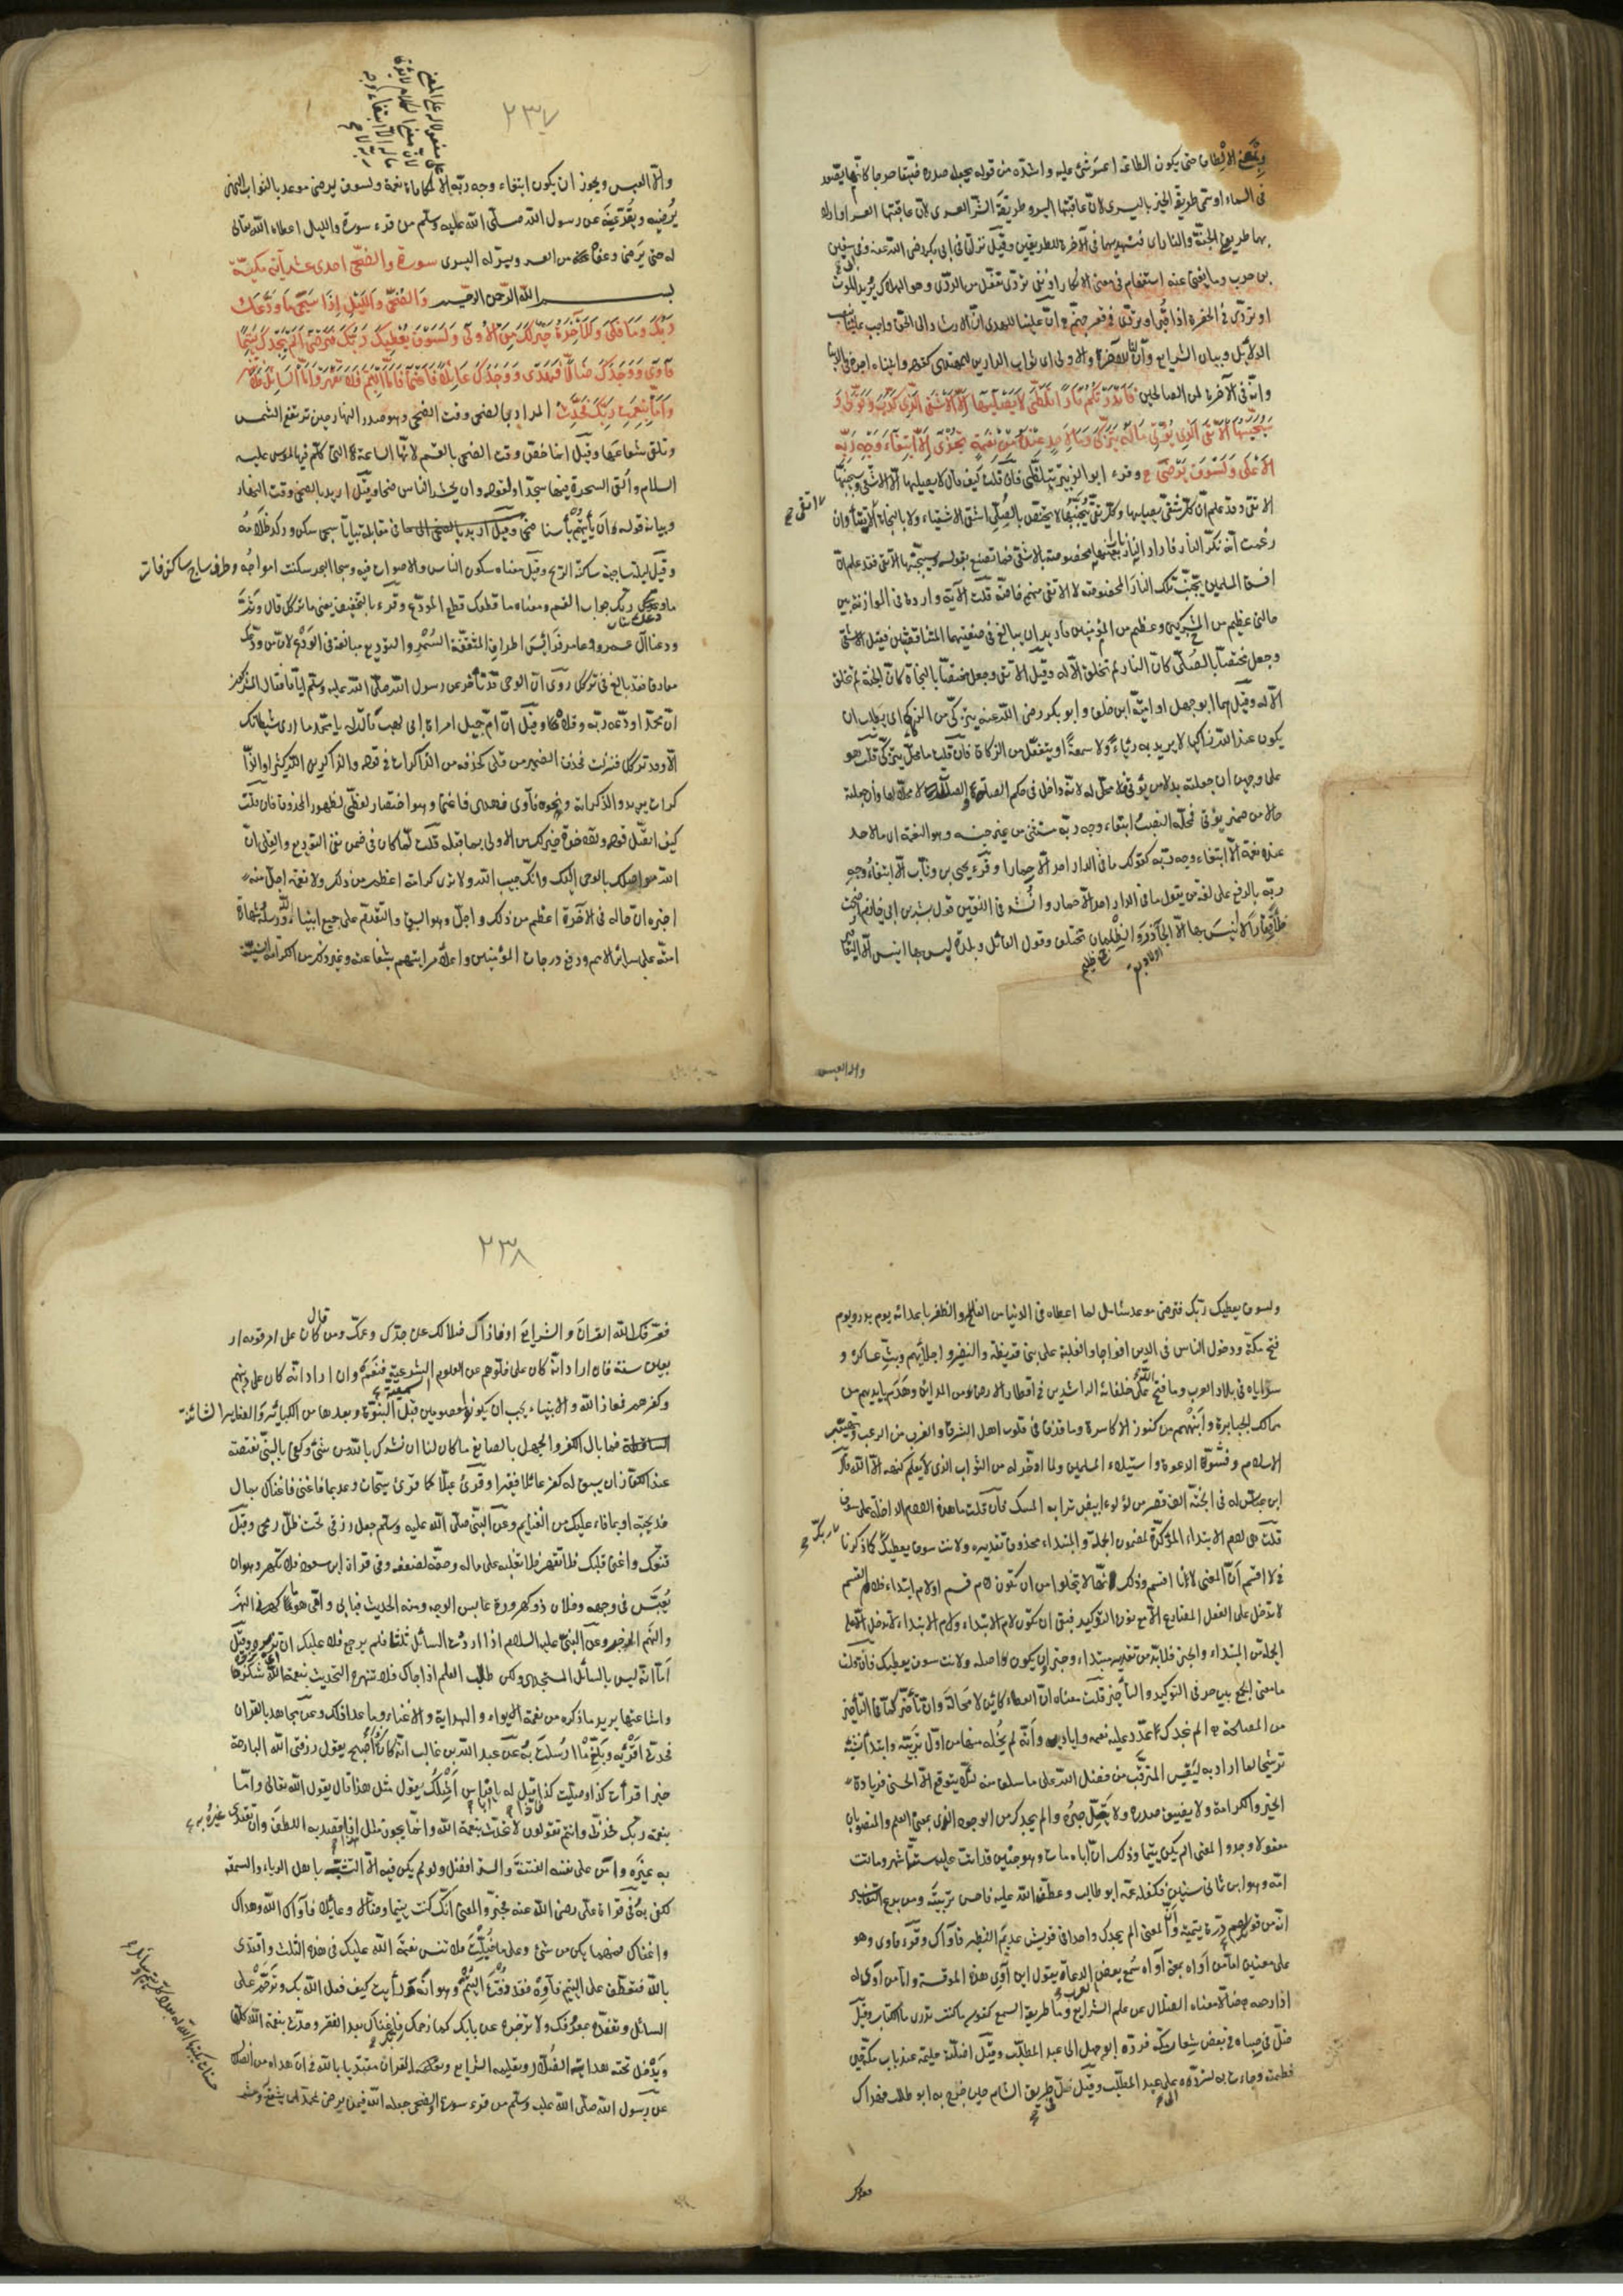 ونمنعه الالطاف حتى يكون الطاعة اعسر شئ عليه واشده من قوله يجعل صدره ضيقا حرجا كانما يصعد
فى السماء او سمى طريقة الخير باليسرى لان عاقبتها اليسر وطريقة الشر العسرى لان عاقبتها العسر او اراد
بهما طريقى الجنة والنار اى فسنهديهما فى الآخرة للطريقين وقيل نزلتا فى ابى بكر رضى الله عنه وفى ابى سفين
بن حرب وما يغنى عنه استفهام فى معنى الانكار او نفى تردى تفعل من الردى وهو الهلاك يريد الموت
او تردى فى الحفرة اذا قبر او تردى فى قعر جهنم ان علينا للهدى ان الارشاد الى الحق واجب علينا بنصب
الدلائل وبيان الشرايع وان لنا للآخرة والاولى اى ثواب الدارين للمهتدى كقوله وآتيناه اجره فى الدنيا
وانه فى الآخرة لمن الصالحين فَأَنذَرْتُكُمْ نَارًا تَلَظَّى لَا يَصْلَيهَا إِلَّا الْأَشْقَى الَّذِى كَذَّبَ وَتَوَلَّى وَ
سَيُجَنَّبُهَا الْأَتْقَى الَّذِى يُؤْتِى مَالَهُ يَتَزَكَّى وَمَا لِأَحَدٍ عِنْدَهُ مِنْ نِعْمَةٍ تُجْزَى إِلَّا ابْتِغَاءَ وَجْهِ رَبِّهِ
الْأَعْلَى وَلَسَوْفَ يَرْضَى وقرء ابو الزبير تتلظى فان قلت كيف قال لا يصليها الا الاشقى وسيجنبها
الاتقى وقد علم ان كل شقى يصليها وكل تقى يجنبها لا يختص بالصلى اشقى الاشقياء ولا بالنجاة اتقى الاتقياء وان
زعمت انه نكر النار فاراد نارا بعينها مخصوصة بالاشقى فما تصنع بقوله وسيجنبها الاتقى فقد علم ان
افسق المسلمين يجنب تلك النار المخصوصة لا الاتقى منهم خاصة قلت الآية واردة فى الموازنة بين
حالتى عظيم من المشركين وعظيم من المؤمنين فاريد ان يبالغ فى صفتيهما المتناقضتين فقيل الاشقى
وجعل مختصا بالصلى كان النار لم تخلق الا له وقيل الاتقى وجعل مختصا بالنجاة كان الجنة لم تخلق
الا له وقيل هما ابو جهل او امية ابن خلف وابو بكر رضى الله عنه يتزكى من الزكاء اى يطلب ان
يكون عند الله زاكيا لا يريد به رئاء ولا سمعة او يتفعل من الزكاة فان قلت ما محل يتزكى قلت هو
على وجهين ان جعلته بدلا من يؤتى فلا محل له لانه داخل فى حكم الصلة والصلات لا محل لها وان جعلته
حالا من ضمير يؤتى فمحله النصب ابتغاء وجه ربه مستثنى من غير جنسه وهو النعمة اى ما لاحد
عنده نعمة الا ابتغاء وجه ربه كقولك ما فى الدار احد الا حمارا وقرء يحيى بن وثاب الا ابتغاء وجه
ربه بالرفع على لغة من يقول ما فى الدار احد الا حمار وانشد فى اللغتين قول بشر بن ابى خازم اضحت
خلاء قفارا لا انيس بها الا الجآذر والظلمان تختلف وقول القائل وبلدة ليس بها انيس الا اليعافير
والا العيس
٢٣٧
والا العيس ويجوز ان يكون ابتغاء وجه ربه الا لمكافاة نعمة ولسوف يرضى موعد بالثواب الذى
يرضيه ويقر عينه عن رسول الله صلى الله عليه وسلم من قرء سورة والليل اعطاه الله تعالى
له حتى يرضى وعفاه من العسر ويسر له اليسرى سورة والضحى احدى عشر آية مكية
بسم الله الرحمن الرحيم وَالضُّحَى وَاللَّيْلِ إِذَا سَجَى مَا وَدَّعَكَ
رَبُّكَ وَمَا قَلَى وَلَلْآخِرَةُ خَيْرٌ لَكَ مِنَ الْأُولَى وَلَسَوْفَ يُعْطِيكَ رَبُّكَ فَتَرْضَى أَلَمْ يَجِدْكَ يَتِيمًا
فَآوَى وَوَجَدَكَ ضَالًّا فَهَدَى وَوَجَدَكَ عَائِلًا فَأَغْنَى فَأَمَّا الْيَتِيمَ فَلَا تَقْهَرْ وَأَمَّا السَّائِلَ فَلَا تَنْهَرْ
وَأَمَّا بِنِعْمَةِ رَبِّكَ فَحَدِّثْ المراد بالضحى وقت الضحى وهو صدر النهار حين ترتفع الشمس
وتلقى شعاعها وقيل انما خص وقت الضحى بالقسم لانها الساعة التى كلم فيها موسى عليه
السلام والقى السحرة فيها سجدا لقوله وان يحشر الناس ضحى وقيل اريد بالضحى وقت النهار
وبيانه قوله ان يأتيهم بأسنا ضحى فى مقابلة بياتا سجى سكن وركد ظلامه
وقيل ليلة ساجية ساكنة الريح وقيل معناه سكون الناس والاصوات فيه وسجا البحر سكنت امواجه وطرف ساج ساكن فاتر
ما ودعك ربك جواب القسم ومعناه ما قطعك قطع المودع وقرء بالتخفيف يعنى ما تركك قال وثم
ودعنا آل عمرو وعامر فرائس اطراف المثقفة السمر والتوديع مبالغة فى الودع لان من ودعك
مفارقا فقد بالغ فى تركك روى ان الوحى قد تأخر عن رسول الله صلى الله عليه وسلم اياما فقال المشركون
ان محمدا ودعه ربه وقلاه وقيل ان ام جميل امراة ابى لهب قالت له يا محمد ما ارى شيطانك
الا قد تركك فنزلت حذف الضمير من قلى كحذفه من الذاكرات فى قوله والذاكرين الله كثيرا والذا
كرات يريد والذاكراته ونحوه فآوى فهدى فاغنى وهو اختصار لفظى لظهور المحذوف فان قلت
كيف اتصل قوله وللآخرة خير لك من الاولى بما قبله قلت لما كان فى ضمن نفى التوديع والقلى ان
الله مواصلك بالوحى اليك وانك حبيب الله ولا ترى كرامة اعظم من ذلك ولا نعمة اجل منه
اخبره ان حاله فى الآخرة اعظم من ذلك واجل وهو السبق والتقدم على جميع انبياء الله ورسله وشهادة
امته على سائر الامم ورفع درجات المؤمنين واعلاء مراتبهم بشفاعته وغير ذلك من الكرامة السنية
ولسوف يعطيك ربك فترضى موعد شامل لما اعطاه فى الدنيا من الفلج والظفر باعدائه يوم بدر ويوم
فتح مكة ودخول الناس فى الدين افواجا والغلبة على بنى قريظة والنضير واجلائهم وبث عساكره و
سراياه فى بلاد العرب وما فتح على خلفائه الراشدين فى اقطار الارض من المداين وهدم بايديهم من
ممالك الجبابرة وانهبهم من كنوز الاكاسرة وما قذف فى قلوب اهل الشرق والغرب من الرعب وتهيب
الاسلام وفشو الدعوة واستيلاء المسلمين ولما ادخر له من الثواب الذى لا يعلم كنهه الا الله قال
ابن عباس له فى الجنة الف قصر من لؤلؤ ابيض ترابه المسك فان قلت ما هذه اللام الداخلة على سوف
قلت هى لام الابتداء المؤكدة لمضمون الجملة والمبتداء محذوف تقديره ولانت سوف يعطيك كما ذكرنا
فى لا اقسم ان المعنى لانا اقسم وذلك انها لا يخلوا من ان تكون لام قسم او لام ابتداء فلام القسم
لا تدخل على الفعل المضارع الا مع نون التوكيد فبقى ان تكون لام الابتداء ولام الابتداء لا تدخل الا على
الجملة من المبتداء والخبر فلا بد من تقدير مبتداء وخبر ان يكون اصله ولانت سوف يعطيك فان قلت
ما معنى الجمع بين حرفى التوكيد والتأخير قلت معناه ان العطاء كائن لا محالة وان تأخر لما فى التأخير
من المصلحة الم يجدك عدد عليه نعمه واياديه وانه لم يخله منها من اول تربيته وابتداء نشئه
ترشيحا لما اراد به ليقيس المترقب من فضل الله على ما سلف منه لئلا يتوقع الا الحسنى وزيادة
الخير والكرامة ولا يضيق صدره ولا يقل صبره والم يجدك من الوجود الذى بمعنى العلم والمنصوبان
مفعولا وجد والمعنى الم يكن يتيما وذلك ان اباه مات وهو جنين قد اتت عليه ستة اشهر وماتت
امه وهو ابن ثمانى سنين فكفله عمه ابو طالب وعطفه الله عليه فاحسن تربيته ومن بدع التفاسير
انه من قولهم درة يتيمة وان المعنى الم يجدك واحدا فى قريش عديم النظير فآواك وقرء فاوى وهو
على معنيين اما من اواه بمعنى آواه سمع بعض الرعاة يقول اين آوى هذه الموقسة واما من اوى له
اذا رحمه ضالا معناه الضلال عن علم الشرايع وما طريقه السمع كقوله ما كنت تدرى ما الكتاب وقيل
ضل فى صباه فى بعض شعاب مكة فرده ابو جهل الى عبد المطلب وقيل اضلته حليمة عند باب مكة حين
فطمته وجاءت به لترده على عبد المطلب وقيل ضل طريق الشام حين خرج به ابو طالب فهداك
٢٣٨
فعرفك الله القرآن والشرايع او فازال ضلالك عن جدك وعمك ومن قال كان على امر قومه ار
بعين سنة فان اراد انه كان على خلوهم عن العلوم السمعية فنعم وان اراد انه كان على دينهم
وكفرهم فمعاذ الله والانبياء يجب ان يكونوا معصومين قبل النبوة وبعدها من الكبائر والصغاير الشائنة
فما بال الكفر والجهل بالصانع ما كان لنا ان نشرك بالله من شئ وكفى بالنبى نقيصة
عند الكفار ان يسبق له كفر عائلا فقيرا وقرئ عيلا كما قرئ سيحات وعديما فاغنى فاغناك بمال
خديجة او بما افاء عليك من الغنايم وعن النبى صلى الله عليه وسلم جعل رزقى تحت ظل رمحى وقيل
قنعك واغنى قلبك فلا تقهر فلا تغلبه على ماله وحقه لضعفه وفى قراءة ابن مسعود فلا تكهر وهو ان
يعبس فى وجهه وفلان ذو كهرورة عابس الوجه ومنه الحديث فبابى وامى هو ما كهرنى النهر
والنهم الزجر وعن النبى عليه السلام اذا رددت السائل ثلثا فلم يرجع فلا عليك ان تزبره وقيل
اما انه ليس بالسائل المستجدى ولكن طالب العلم اذا جاءك فلا تنهره التحديث بنعمة الله شكرها
واشاعتها يريد ما ذكره من نعمة الايواء والهداية والاغناء وما عدا ذلك وعن مجاهد بالقران
فحدث اقرئه وبلغ ما ارسلت به عن عبد الله بن غالب انه كان اذا اصبح يقول رزقنى الله البارحة
خيرا قرأت كذا وصليت كذا فقيل له يا ابا فراس امثلك يقول مثل هذا قال يقول الله تعالى واما
بنعمة ربك فحدث وانتم تقولون لا تحدث بنعمة الله وانما يجوز مثل هذا اذا قصد به اللطف وان يقتدى
به غيره وامن على نفسه الفتنة والستر افضل ولو لم يكن فيه الا التشبه باهل الرياء والسمعة
لكفى به وفى قراءة على رضى الله عنه فخبر والمعنى انك كنت يتيما وضالا وعائلا فآواك الله وهداك
واغناك فمهما يكن من شئ وعلى ما خيلت فلا تنس نعمة الله عليك فى هذه الثلث واقتدى
بالله فتعطف على اليتيم فآوه فقد ذقت اليتم وهوانه ورأيت كيف فعل الله بك وترحم على
السائل وتفقده بمعروفك ولا تزجره عن بابك كما رحمك ربك فاغناك بعد الفقر وحدث بنعمة الله كلها
ويدخل تحته هدايته الضلال وتعليمه الشرايع والقران مقتديا بالله فى ان هداه من الضلال
عن رسول الله صلى الله عليه وسلم من قرء سورة والضحى جعله الله فيمن يرضى لمحمد ان يشفع له وعشر